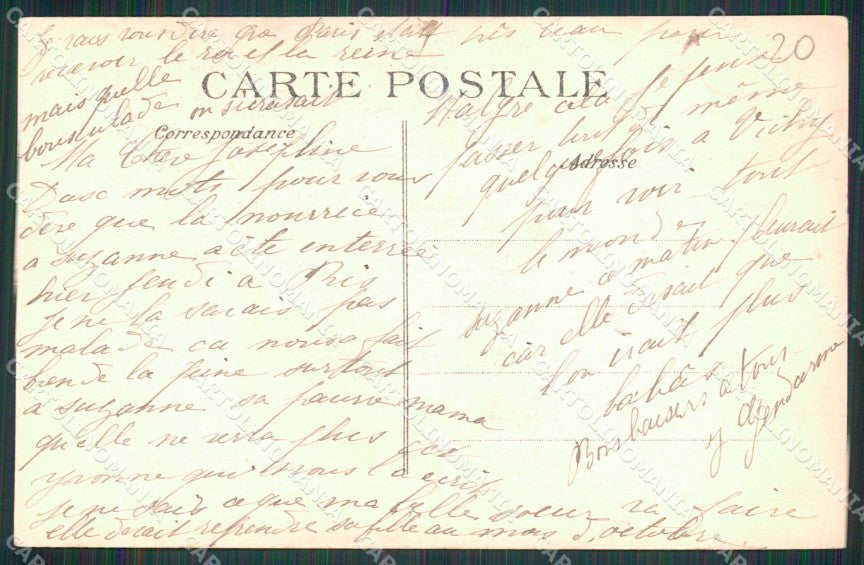 Je vais vous dire que Paris était très beau pour
recevoir le roi et la reine
mais quelle
bousculade on s'ecrasait
CARTE POSTALE
20
Correspondance
Adresse
Ma Chere Josephine
mots pour vous
dire que la nourrice
a suzanne a été enterrée
hier jeudi a
je ne la savais pas
malade ca nous a fait
de la peine surtout
a suzanne sa pauvre mama
qu'elle ne verra plus
yvonne qui nous l'a ecrit
je ne sais ce que ma belle soeur va faire
elle devait reprendre sa fille au mois d'octobre.
Malgre cela je pense
passer tout de même
quelque fois a Vitry
pour voir tout
le monde
suzanne ce matin pleurait
car elle disait que
l'on irait plus
Bons baisers a tous
CARTOLINOMANIA